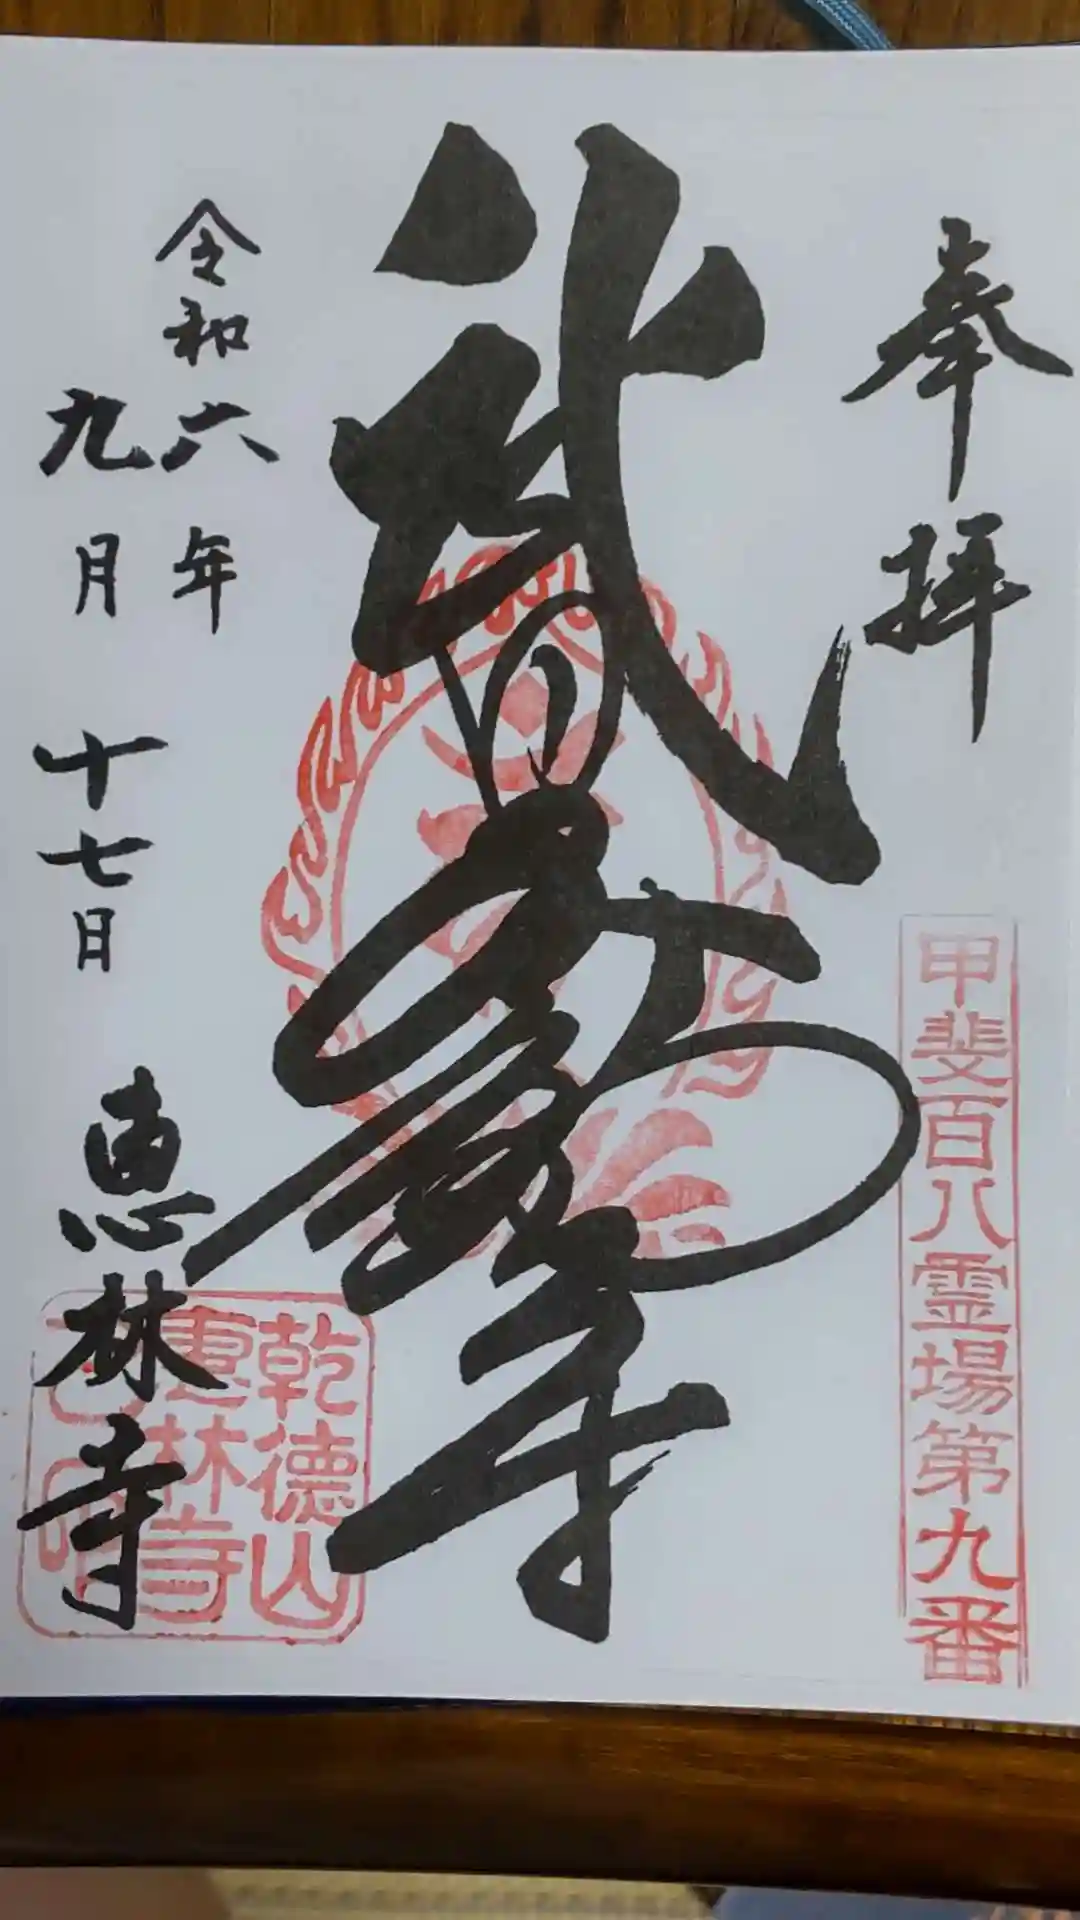 奉拝
甲斐百八霊場第九番
武田不動尊
令和六年
九月十七日
恵林寺
乾徳山
恵林寺